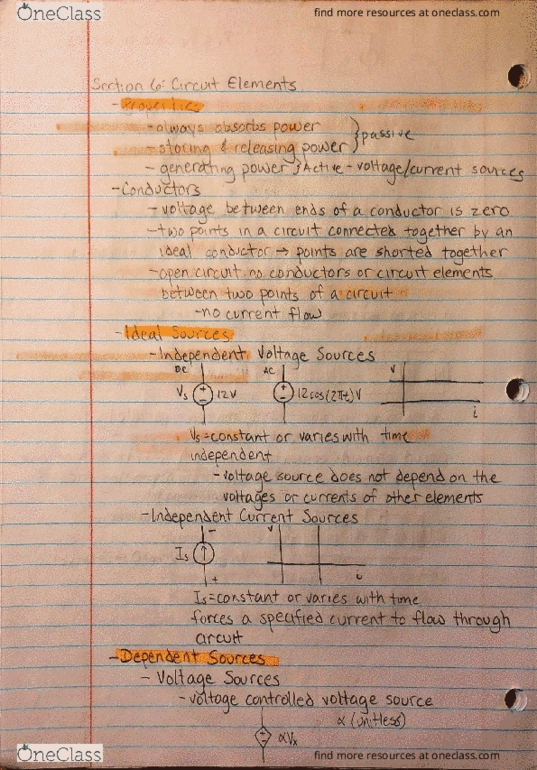 OneClass
find more resources at oneclass.com
Section 6: Circuit Elements
- Properties
- always absorbs power
- storing & releasing power } passive
- generating power } Active - voltage/current sources
- Conductors
- voltage between ends of a conductor is zero
- two points in a circuit connected together by an
ideal conductor → points are shorted together
- open circuit: no conductors or circuit elements
between two points of a circuit
- no current flow
- Ideal Sources
- Independent Voltage Sources
DC AC V
Vs + - 12V + - 12cos(2πt)V
i
Vs = constant or varies with time
independent
- voltage source does not depend on the
voltages or currents of other elements
- Independent Current Sources
- V
Is ↑
+ i
Is = constant or varies with time
forces a specified current to flow through
circuit
- Dependent Sources
- Voltage Sources
- voltage controlled voltage source
α (unitless)
+ - αVx
OneClass
find more resources at oneclass.com